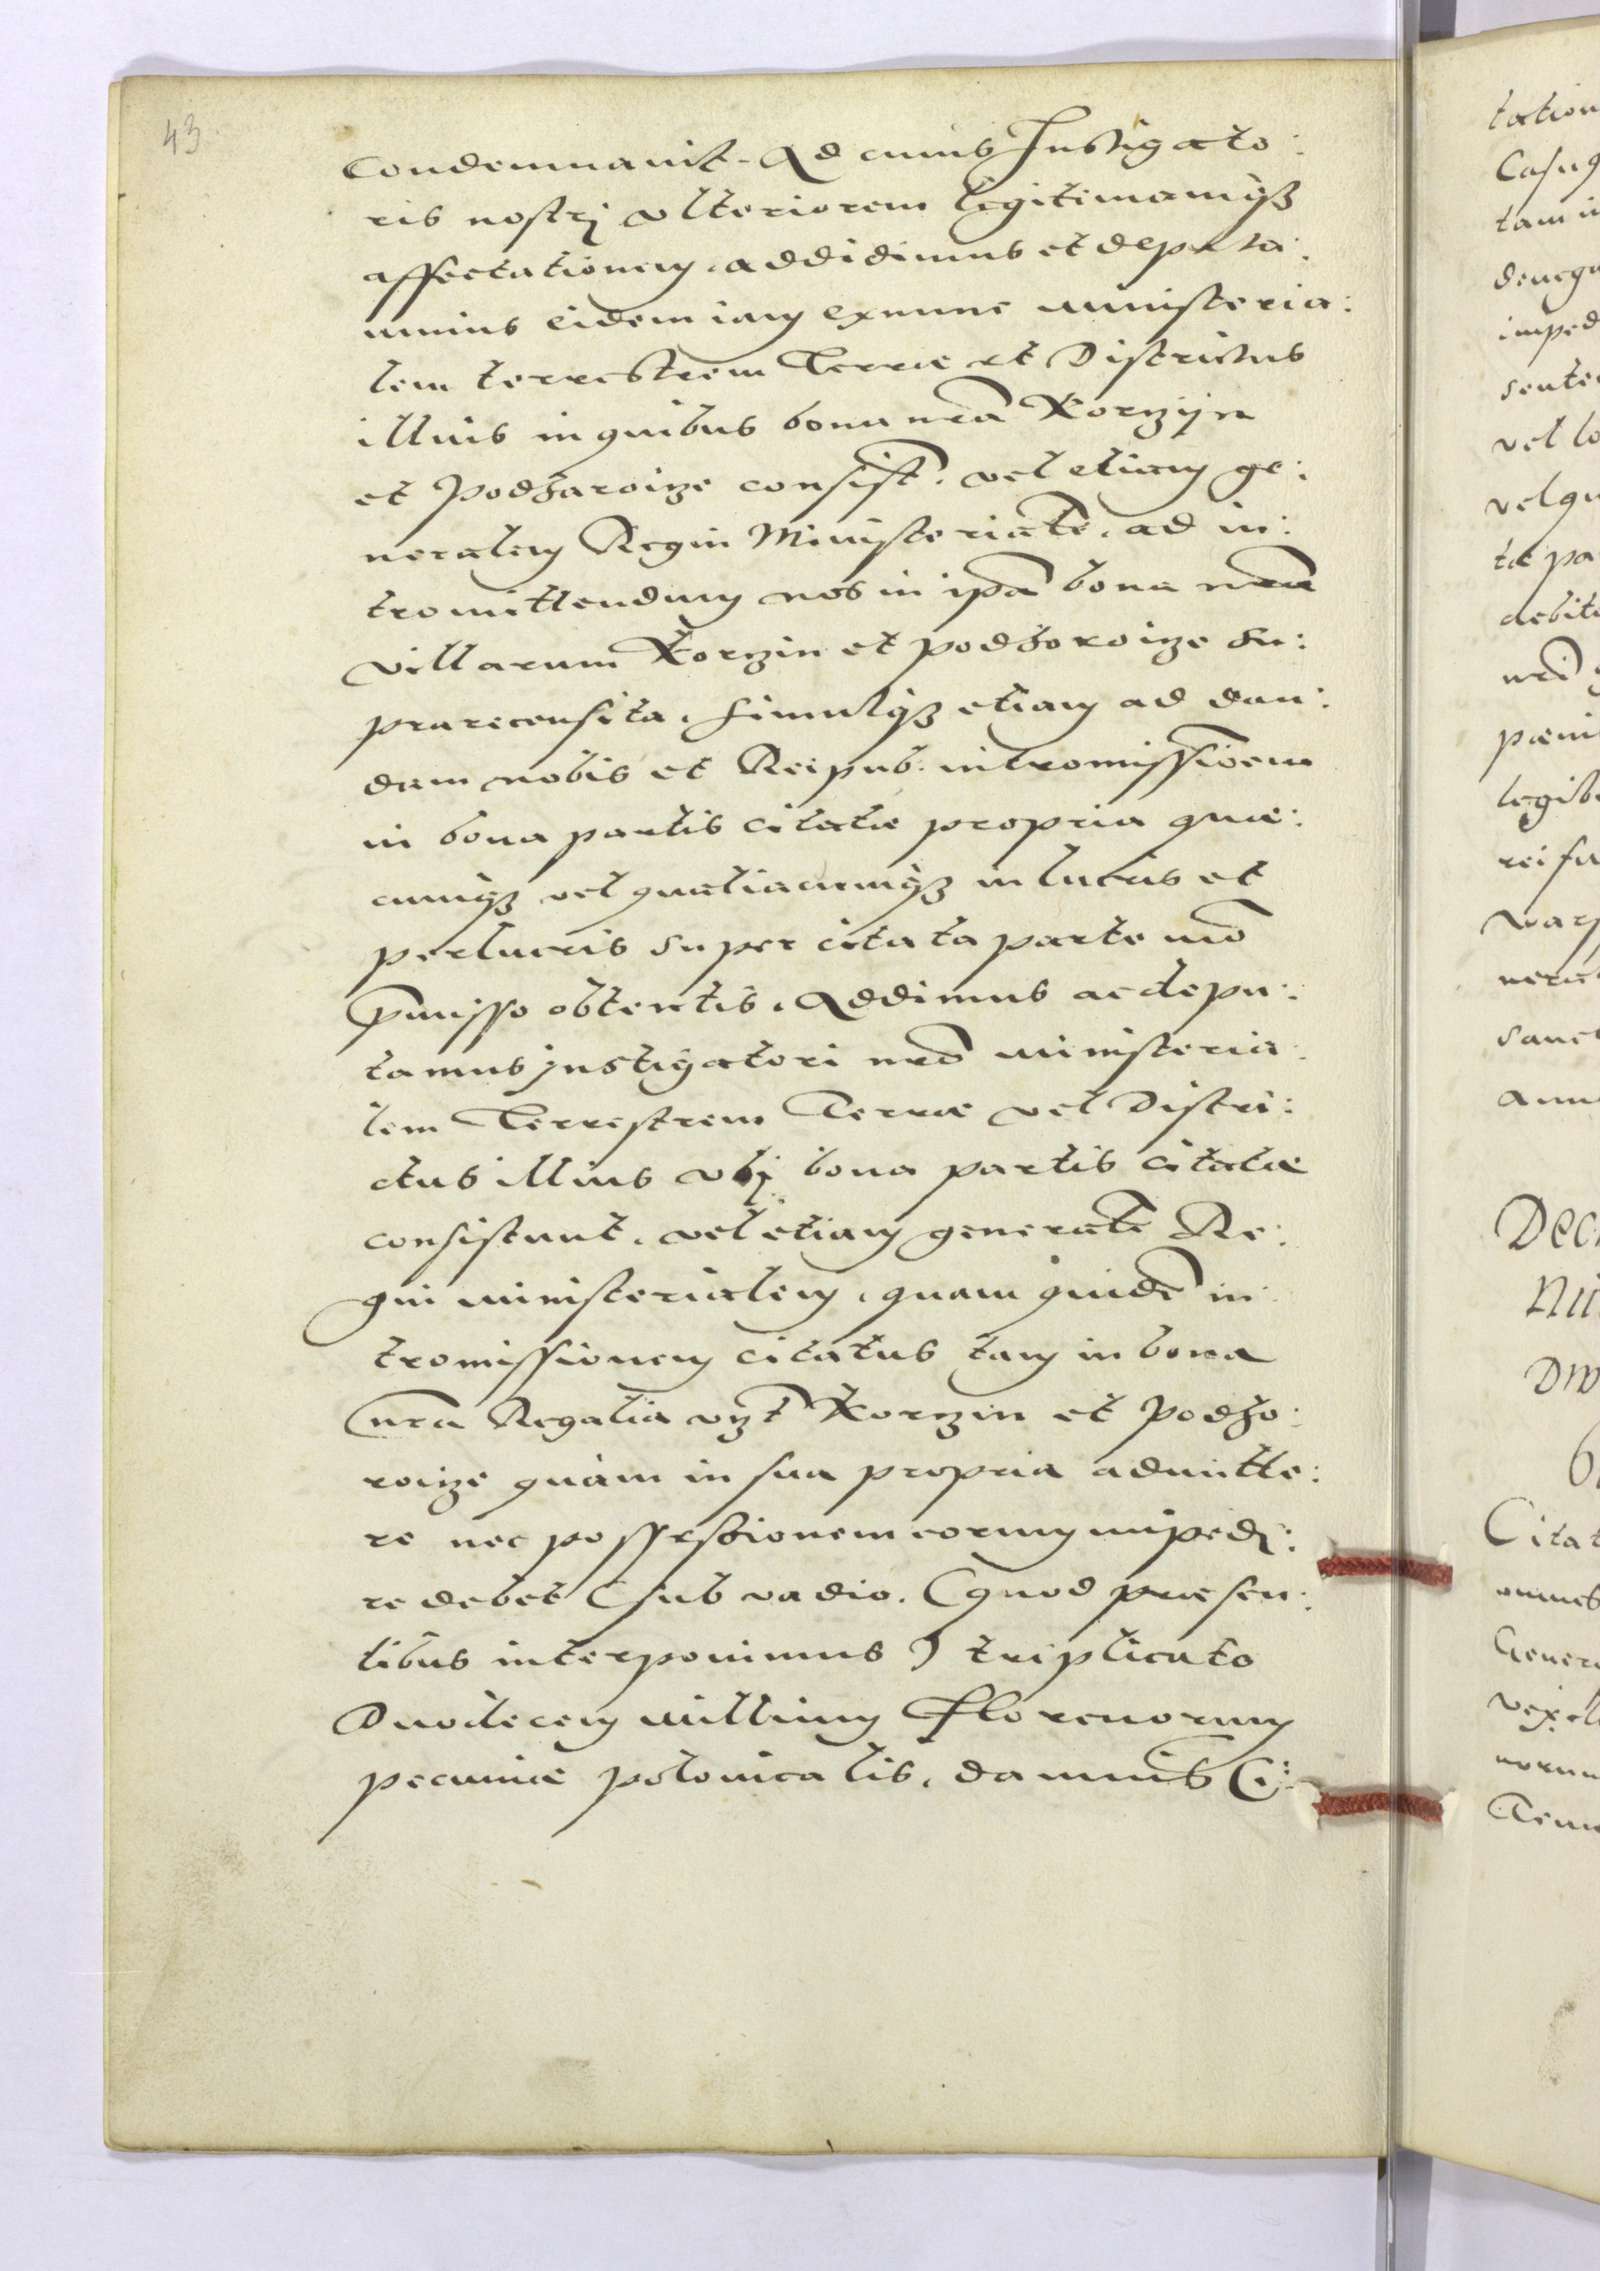 43
Condemnavit. Ad cuius Instigato:
ris nostrj vlteriorem legitimamq3
affectationem, addidimus et deputa:
uimus eidem iam exnunc ministeria:
lem terrestrem Terrae et Districtus
illius in quibus bona nra Korzyn
et Podhoroize consist. vel etiam ge:
neralem Regni Ministeriale, ad in:
tromittendum nos in ipa bona nra
villarum Korzin et podhoroize su:
prarecensita, simulq3 etiam ad dan:
dam nobis et Reipub: intromissioem
in bona partis citatae propria quae:
cumq3 vel qualiacumq3 in lucris et
perlucris super citata parte mo
pmisso obtentis, Addimus ac depu:
tamus jnstigatori nro ministeria:
lem Terrestrem Terrae vel Distri:
ctus illius vbj bona partis citatae
consistunt, vel etiam generale Re:
gni ministerialem, quam quide in:
tromissionem citatus tam in bona
nra Regalia vzt Korzin et Podho:
roize quàm in sua propria admitte:
re nec possessionem eorum impedj:
re debet (sub vadio. (quod praesen:
tibus interponimus) triplicato
Duodecem millium Florenorum
pecuniae polonicalis, damnis Ci:
tation
Casuq
tam i
deneg
imped
sente
vel lo
vel qu
tae pa
debit
nri
paeni
legib
rei su
Wars
nera
sanct
Ann
Dec
Nu
Citat
omnes
Gener
vexil
norum